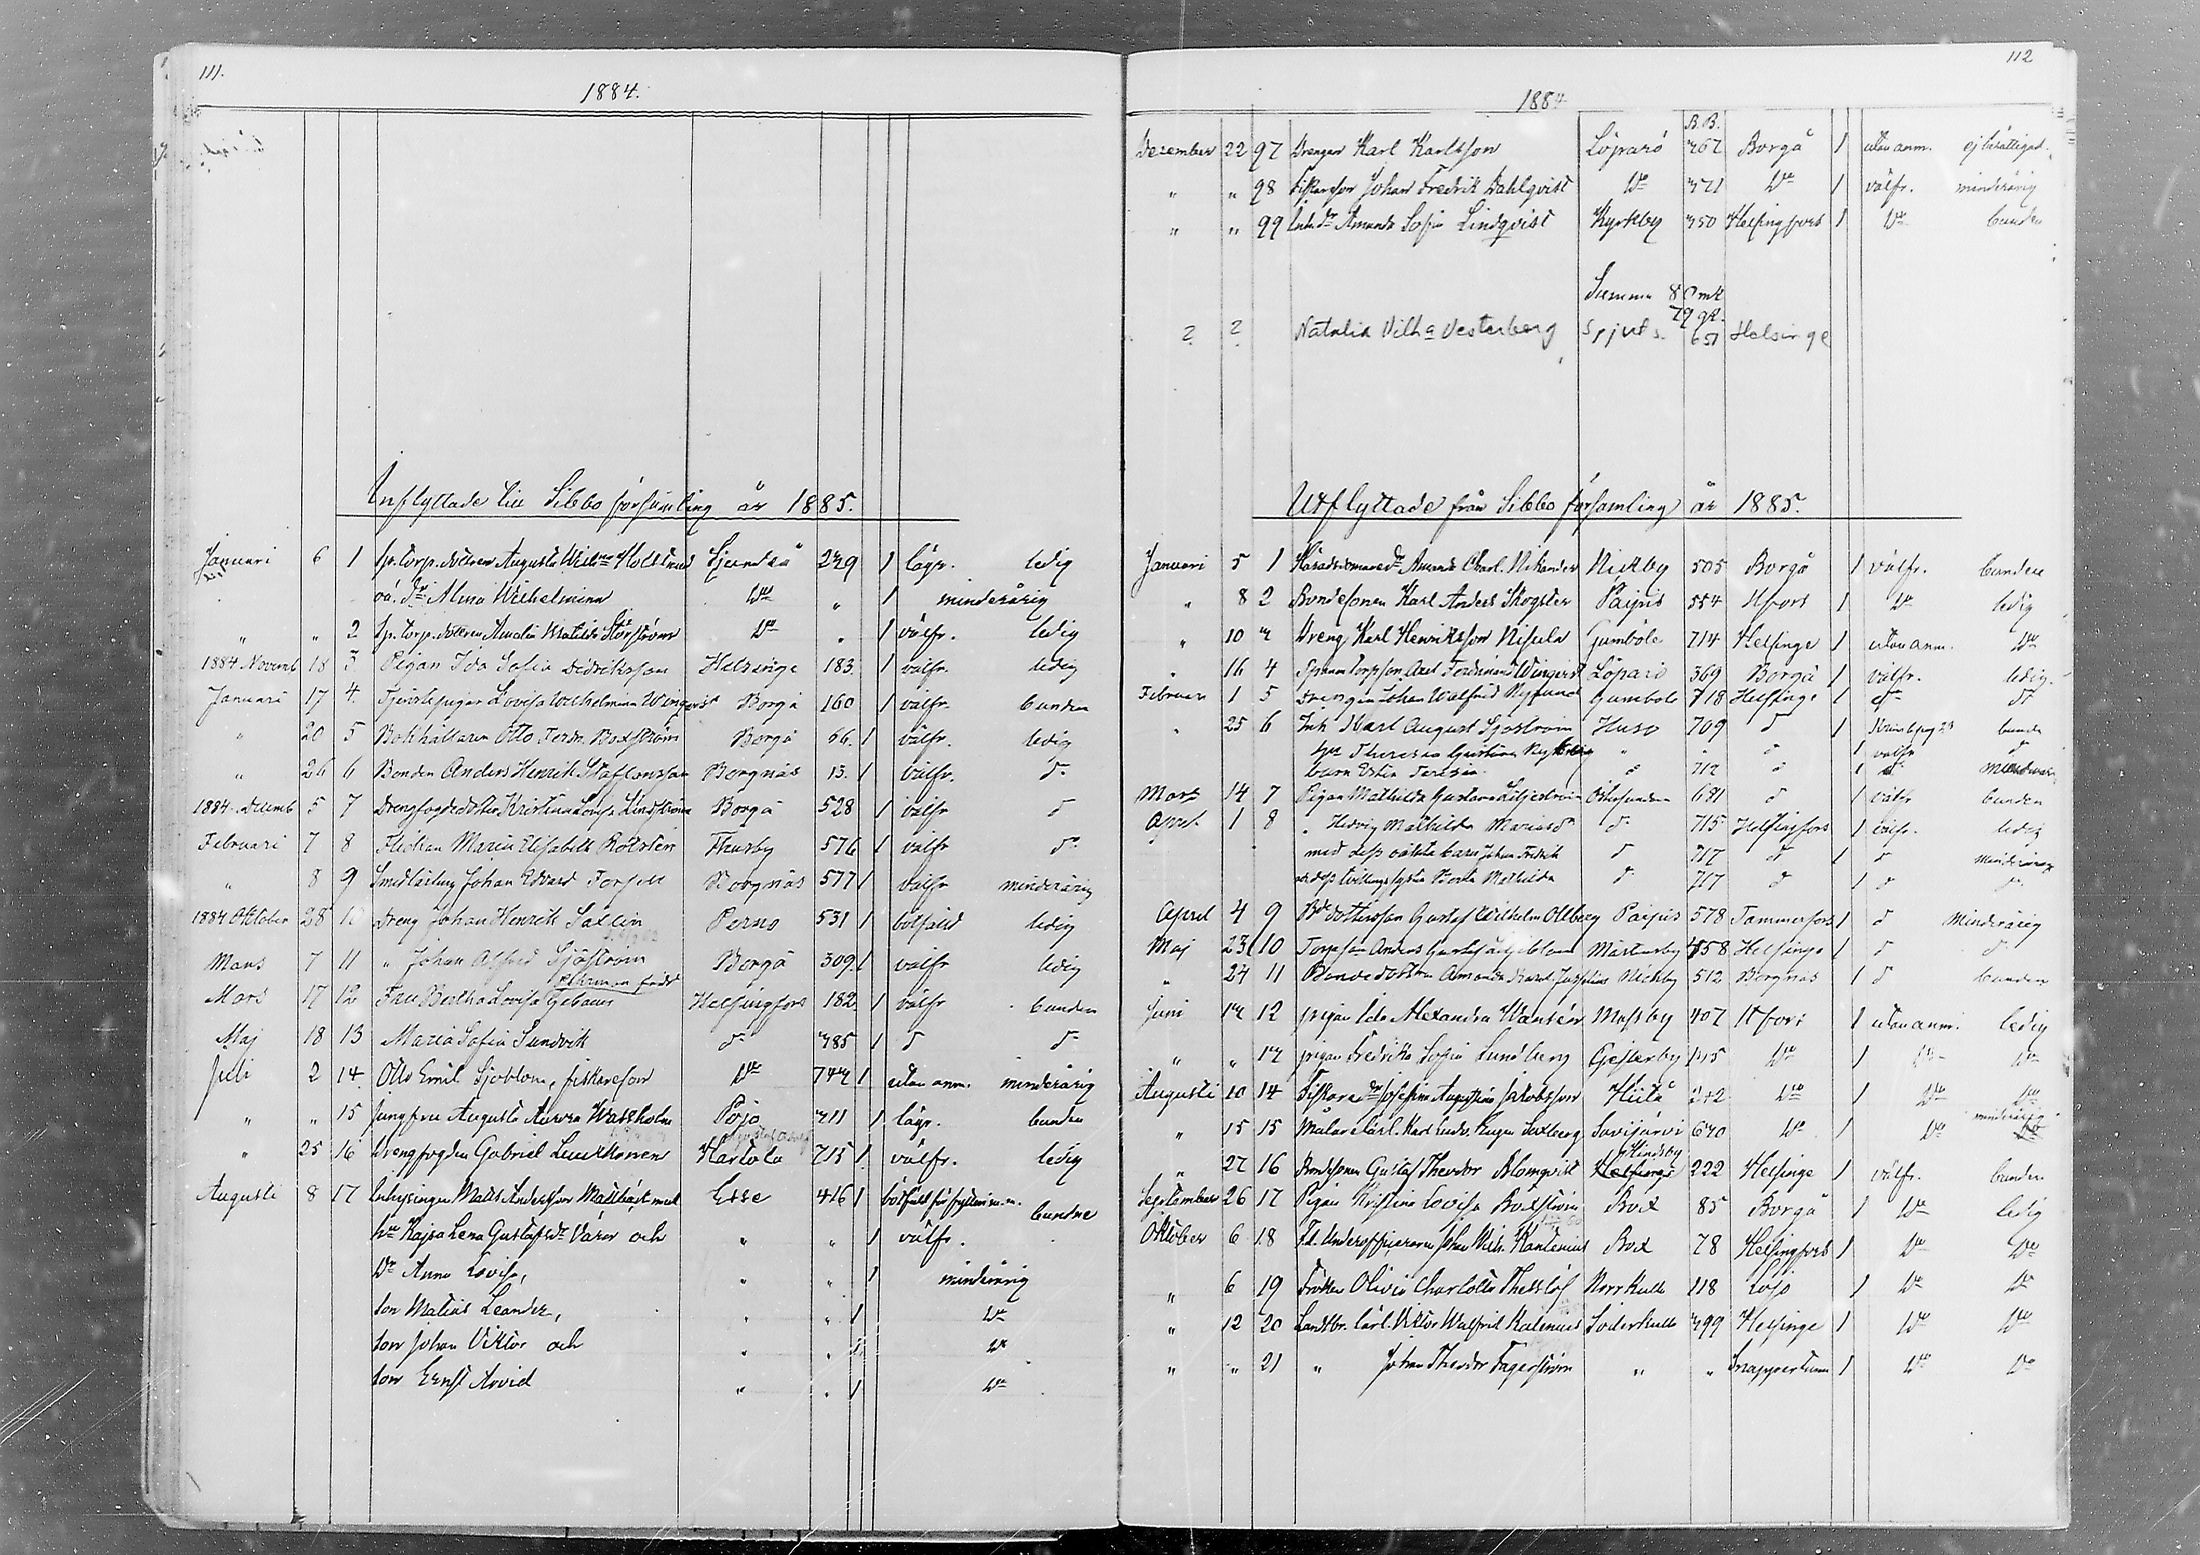 111.
1884.
Inflyttade till Sibbo församling år 1885.
Januari 6 1 Sp. torp. dottren Augusta Sjundeå 229 1 lägr. ledig
oä. dr Alina Wilhelmina Do " 1 minderårig
" " 2 Sp. torp. dottren Amalia Matilda Storström Do " 1 välfr. ledig
1884 Novemb 18 3 Pigan Ida Sofia Didriksson Helsinge 183 1 välfr. ledig
Januari 17 4. Lovisa Wilhelmina Wingvist Borgå 160 1 välfr. bunden
" 20 5 Bokhållaren Otto Ferdn. Boxström Borgå 66. 1 välfr. ledig
" 26 6 Bonden Anders Henrik Staffansson Borgnäs 13. 1 välfr. do
1884 Decemb 5 7 Drengfogdedottr Kristina Lovisa Lindström Borgå 528 1 välfr d
Februari 7 8 Flickan Maria Elisabeth Rotsten Thusby 576 1 välfr do
" 8 9 Smedlärling Johan Edvard Forsell Borgnäs 577 1 välfr minderårig
1884 Oktober 28 10 Dreng Johan Henrik Sallin Perno 531 1 botfäld ledig
Mars 7 11 " Johan Alfred Sjöström Borgå 309 1 välfr ledig
Mars 17 12 Fru Bertha Lovisa Gebauer född Helsingfors 182 1 välfr bunden
Maj 18 13 Maria Sofia Sundvik do 385 1 d do
Juli 2 14. Otto Emil Sjöblom, fiskareson Do 1 utan anm. minderårig
" " 15 Jungfru Augusta Aurora Wassholm Pojo 311 1 lägr. bunden
" 25 16 Drengfogden Gabriel Leukkonen Hartola 715 1 välfr. ledig
Augusti 8 17 Inhysingen Matts Andersson med Esse 416 1 botfäld för fylleri m.m. bundne
hu Kajsa Lena Gustafsdr och " " 1 välfr.
Dr Anna Lovisa, " " 1 minderårig
son Matias Leander, " " 1 Do
son Johan Viktor och " " 1 Do
son Ernst Arvid " " 1 Do
112
1884
B.B.
December 22 97 Drengen Karl Karlsson Löparö 367 Borgå 1 utan anm. ej berättigad.
" " 98 Fiskareson Johan Fredrik Dahlqvist Do 371 Do 1 välfr. minderårig
" " 99 Inh. dr Amanda Sofia Lindqvist Kyrkby 350 Helsingfors 1 Do bunden
Summa 80 mk
79 qv.
? ? Natalia Vilh:a Vesterberg Spjuts. 651 Helsinge
Utflyttade från Sibbo församling år 1885.
Januari 5 1 Häradsdomaredr Amanda Charl. Nikander Nickby 505 Borgå 1 välfr. bunden
" 8 2 Bondesonen Karl Anders Skogster Paipis 554 Hfors 1 Do ledig
" 10 3 Dreng Karl Henriksson Nisula Gumböle 714 Helsinge 1 utan anm. Do
" 16 4 Axel Ferdinand Wingvist Löparö 369 Borgå 1 välfr. ledig.
Februari 1 5 Drengen Johan Walfrid Nylund Gumböle 718 Helsinge 1 do do
" 25 6 Inh Karl August Sjöström Huso 709 d 1 bunde
hu Theresia Gustava " " d 1 välfr d
barn d 712 d 1 d minderår
Mars 14 7 Pigan Mathilda Gustava Liljeström Östersundom 681 d 1 välfr bunden
April 1 8 " Hedvig Mathilda Mariasdr do 715 Helsingfors 1 välfr. ledig
med dess oäkta barn Johan Fredrik d 717 d 1 d minderårig
o. dess tvillingsyster Berta Mathilda d 717 d 1 d do
April 4 9 Bdedotterson Gustaf Wilhelm Ollberg Paipis 578 Tammerfors 1 d Minderårig
Maj 23 10 Torpson Anders Gustaf Mårtensby 458 Helsinge 1 d d
" 24 11 Bondedottren Amanda Nickby 512 Borgnäs 1 d bunden
Juni 13 12 pigan Ida Alexandra Wansén Massby 407 Hfors 1 utan anm. ledig
" " 13 pigan Fredrika Sofia Lundberg Gesterby 145 Do 1 Do Do
Augusti 10 14 Fiskaredr Josefina Augustina Jakobsson Hitå 242 Do 1 Do Do
" 15 15 Målarelärl. Karl Ludv. Eugen Saxberg Savijärvi 640 Do 1 Do minderårig
" 27 16 Bondsonen Gustaf Theodor Blomqvist Hindsby 222 Helsinge 1 välfr. bunden
September 26 17 Pigan Kristina Lovisa Boxström Box 85 Borgå 1 Do ledig
Oktober 6 18 F.d. Underofficeraren Johan Wilh. Kantenius Box 78 Helsingfors 1 Do Do
" 6 19 Fröken Olivia Charlotta Thesslöf Norrkulla 118 Lojo 1 Do Do
" 12 20 Landtbr. lärl. Viktor Walfrid Kalenius Söderkulla 399 Helsinge 1 Do Do
" " 21 " Johan Theodor Fagerström " " Snappertuna 1 Do Do